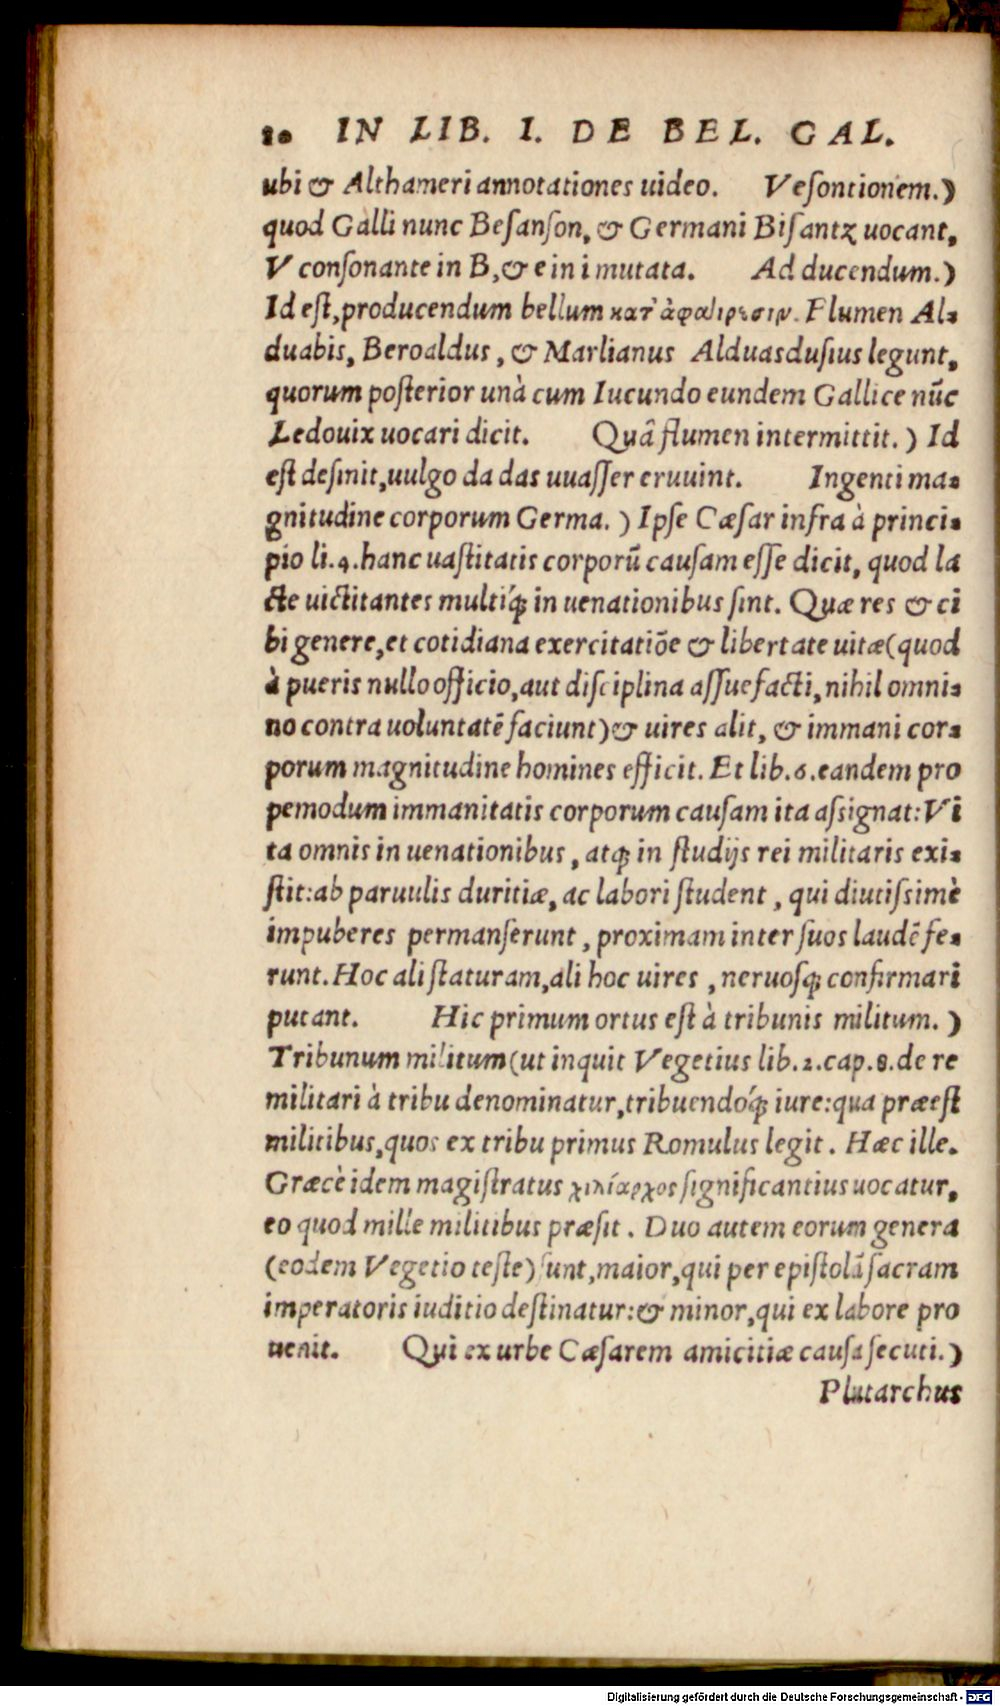 80 IN LIB. I. DE BEL. GAL.
ubi & Althameri annotationes uideo. Vesontionem.)
quod Galli nunc Besanson, & Germani Bisantz uocant,
V consonante in B, & e in i mutata. Ad ducendum.)
Id eſt, producendum bellum κατ᾽ ἀφαίρεσιν. Flumen Al-
duabis, Beroaldus, & Marlianus Alduasdusius legunt,
quorum poſterior unà cum Iucundo eundem Gallice nūc
Ledouix uocari dicit. Quâ flumen intermittit.) Id
eſt deſinit, uulgo da das uuaſſer eruuint. Ingenti ma-
gnitudine corporum Germa.) Ipſe Cæſar infra à princi-
pio li.4. hanc uaſtitatis corporū cauſam eſſe dicit, quod la
cte uictitantes multiq́; in uenationibus ſint. Quæ res & ci
bi genere, et cotidiana exercitatiōe & libertate uitæ (quod
à pueris nullo officio, aut diſciplina aſſuefacti, nihil omni-
no contra uoluntatē faciunt) & uires alit, & immani cor-
porum magnitudine homines efficit. Et lib.6. eandem pro
pemodum immanitatis corporum cauſam ita aſsignat: Vi
ta omnis in uenationibus, atq; in ſtudijs rei militaris exi-
ſtit: ab paruulis duritiæ, ac labori ſtudent, qui diutiſsimè
impuberes permanſerunt, proximam inter ſuos laudē fe-
runt. Hoc ali ſtaturam, ali hoc uires, neruoſq; confirmari
putant. Hic primum ortus eſt à tribunis militum.)
Tribunum militum (ut inquit Vegetius lib.2. cap.8. de re
militari à tribu denominatur, tribuendoq́; iure: qua præeſt
militibus, quos ex tribu primus Romulus legit. Hæc ille.
Græcè idem magiſtratus χιλίαρχος ſignificantius uocatur,
eo quod mille militibus præſit. Duo autem eorum genera
(eodem Vegetio teſte) ſunt, maior, qui per epiſtolā ſacram
imperatoris iuditio deſtinatur: & minor, qui ex labore pro
uenit. Qui ex urbe Cæſarem amicitiæ cauſa ſecuti.)
Plutarchus
Digitalisierung gefördert durch die Deutsche Forschungsgemeinschaft - DFG